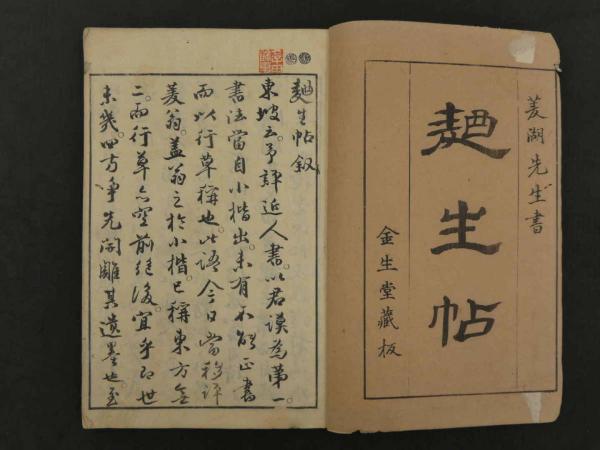 菱湖先生書
麯生帖
金生堂藏板
麯生帖叙
東坡云予評近人書。以君謨為第一。
書法當自小楷出。未有不能正書
而以行草稱也。此語今日當移評
菱翁。蓋翁之於小楷。已稱東方無
二。而行草亦空前絶後。宜乎即世
未幾。四方爭先開雕其遺墨也。至